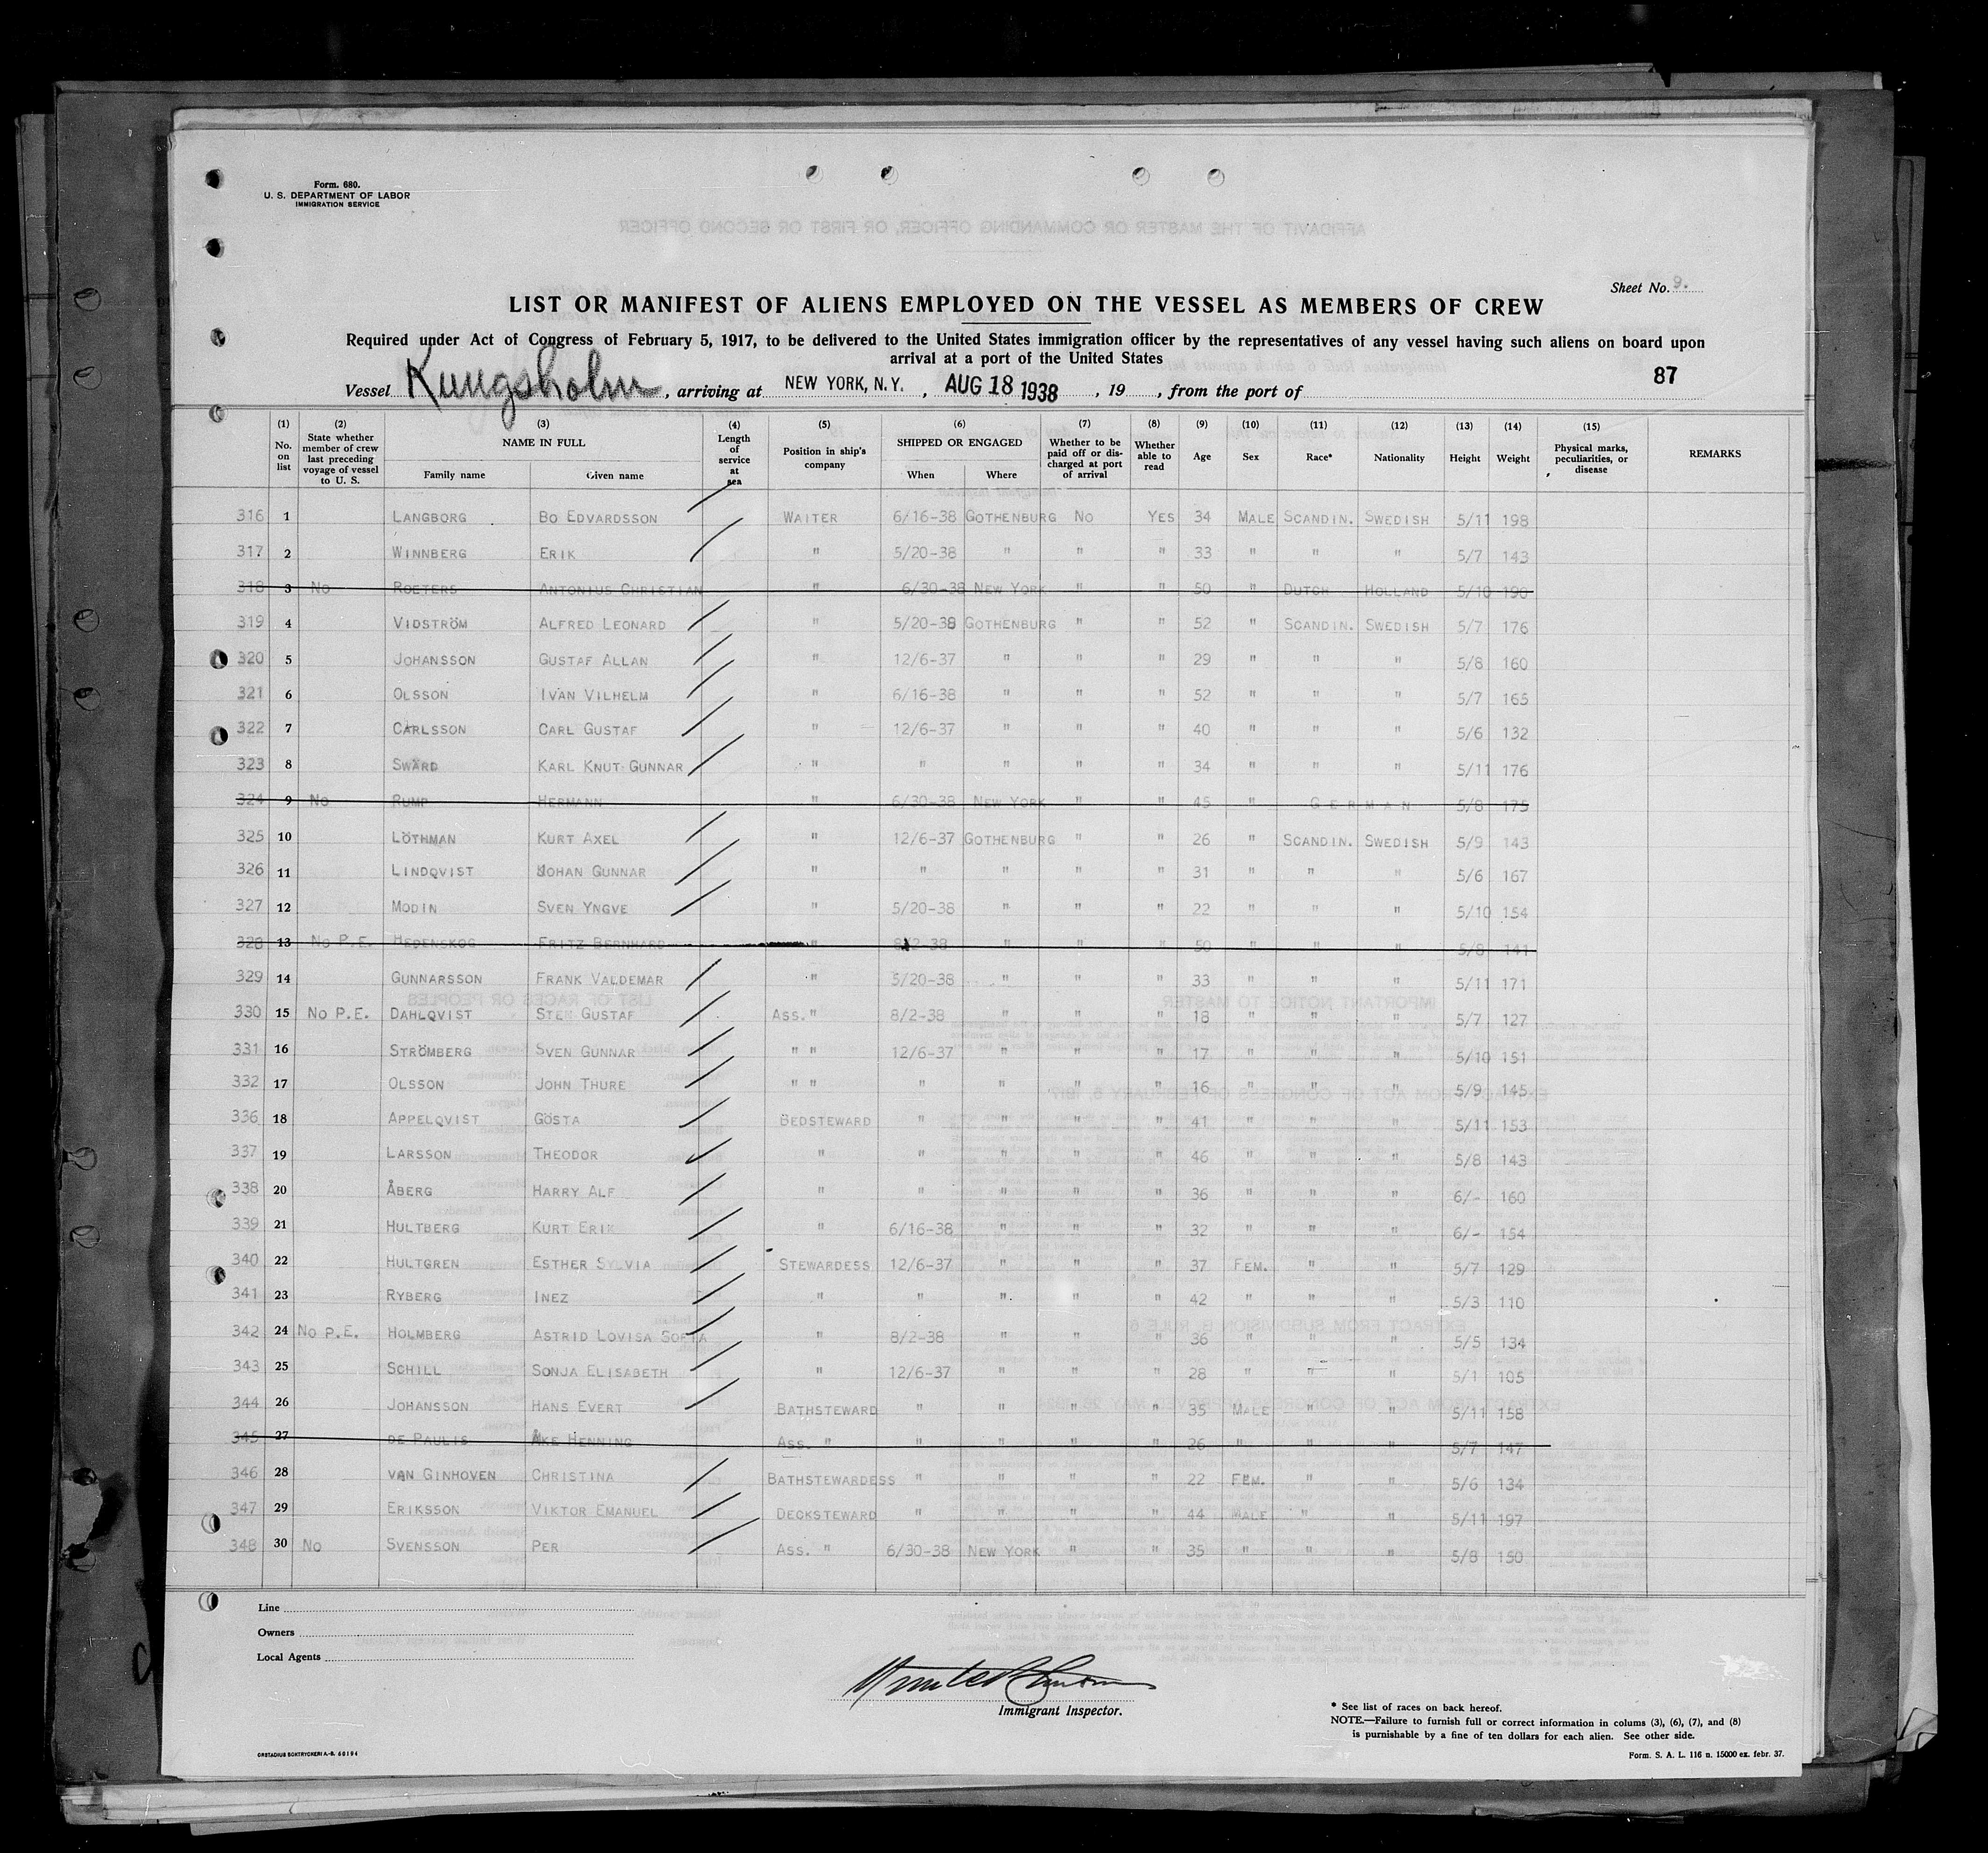 Form. 680.
U. S. DEPARTMENT OF LABOR
IMMIGRATION SERVICE
Sheet No. 9.
LIST OR MANIFEST OF ALIENS EMPLOYED ON THE VESSEL AS MEMBERS OF CREW
Required under Act of Congress of February 5, 1917, to be delivered to the United States immigration officer by the representatives of any vessel having such aliens on board upon
arrival at a port of the United States
87
Vessel Kungsholm, arriving at NEW YORK, N.Y., AUG 18 1938, 19 , from the port of
(1) No. on list (2) State whether member of crew last preceding voyage of vessel to U. S. (3) NAME IN FULL Family name Given name (4) Length of service at sea (5) Position in ship's company (6) SHIPPED OR ENGAGED When Where (7) Whether to be paid off or discharged at port of arrival (8) Whether able to read (9) Age (10) Sex (11) Race* (12) Nationality (13) Height (14) Weight (15) Physical marks, peculiarities, or disease REMARKS
316 1 LANGBORG BO EDVARDSSON WAITER 6/16-38 GOTHENBURG NO YES 34 MALE SCANDIN. SWEDISH 5/11 198
317 2 WINNBERG ERIK " 5/20-38 " " " 33 " " " 5/7 143
318 3 No ROETERS ANTONIUS CHRISTIAN " 6/30-38 NEW YORK " " 50 " DUTCH HOLLAND 5/10 190
319 4 VIDSTRÖM ALFRED LEONARD " 5/20-38 GOTHENBURG " " 52 " SCANDIN. SWEDISH 5/7 176
320 5 JOHANSSON GUSTAF ALLAN " 12/6-37 " " " 29 " " " 5/8 160
321 6 OLSSON IVAN VILHELM " 6/16-38 " " " 52 " " " 5/7 165
322 7 CARLSSON CARL GUSTAF " 12/6-37 " " " 40 " " " 5/6 132
323 8 SWÄRD KARL KNUT GUNNAR " " " " " 34 " " " 5/11 176
324 9 No RUMP HERMANN " 6/30-38 NEW YORK " " 45 " GERMAN 5/8 175
325 10 LÖTHMAN KURT AXEL " 12/6-37 GOTHENBURG " " 26 " SCANDIN. SWEDISH 5/9 143
326 11 LINDQVIST JOHAN GUNNAR " " " " " 31 " " " 5/6 167
327 12 MODIN SVEN YNGVE " 5/20-38 " " " 22 " " " 5/10 154
328 13 No P.E. HEDENSKOG FRITZ BERNHARD " 8/2-38 " " " 50 " " " 5/8 141
329 14 GUNNARSSON FRANK VALDEMAR " 5/20-38 " " " 33 " " " 5/11 171
330 15 No P.E. DAHLQVIST STEN GUSTAF ASS. " 8/2-38 " " " 18 " " " 5/7 127
331 16 STRÖMBERG SVEN GUNNAR " " 12/6-37 " " " 17 " " " 5/10 151
332 17 OLSSON JOHN THURE " " " " " " 16 " " " 5/9 145
336 18 APPELQVIST GÖSTA BEDSTEWARD " " " " 41 " " " 5/11 153
337 19 LARSSON THEODOR " " " " " 46 " " " 5/8 143
338 20 ÅBERG HARRY ALF " " " " " 36 " " " 6/- 160
339 21 HULTBERG KURT ERIK " 6/16-38 " " " 32 " " " 6/- 154
340 22 HULTGREN ESTHER SYLVIA STEWARDESS 12/6-37 " " " 37 FEM. " " 5/7 129
341 23 RYBERG INEZ " " " " " 42 " " " 5/3 110
342 24 No P.E. HOLMBERG ASTRID LOVISA SOFIA " 8/2-38 " " " 36 " " " 5/5 134
343 25 SCHILL SONJA ELISABETH " 12/6-37 " " " 28 " " " 5/1 105
344 26 JOHANSSON HANS EVERT BATHSTEWARD " " " " 35 MALE " " 5/11 158
345 27 DE PAULIS ÅKE HENNING ASS. " " " " " 26 " " " 5/7 147
346 28 VAN GINHOVEN CHRISTINA BATHSTEWARDESS " " " " 22 FEM. " " 5/6 134
347 29 ERIKSSON VIKTOR EMANUEL DECKSTEWARD " " " " 44 MALE " " 5/11 197
348 30 No SVENSSON PER ASS. " 6/30-38 NEW YORK " " 35 " " " 5/8 150
Line
Owners
Local Agents
Immigrant Inspector.
* See list of races on back hereof.
NOTE.—Failure to furnish full or correct information in colums (3), (6), (7), and (8)
is punishable by a fine of ten dollars for each alien. See other side.
ORSTADIUS BOKTRYCKERI A.-B. 60194
Form. S. A. L. 116 n. 15000 ex. febr. 37.